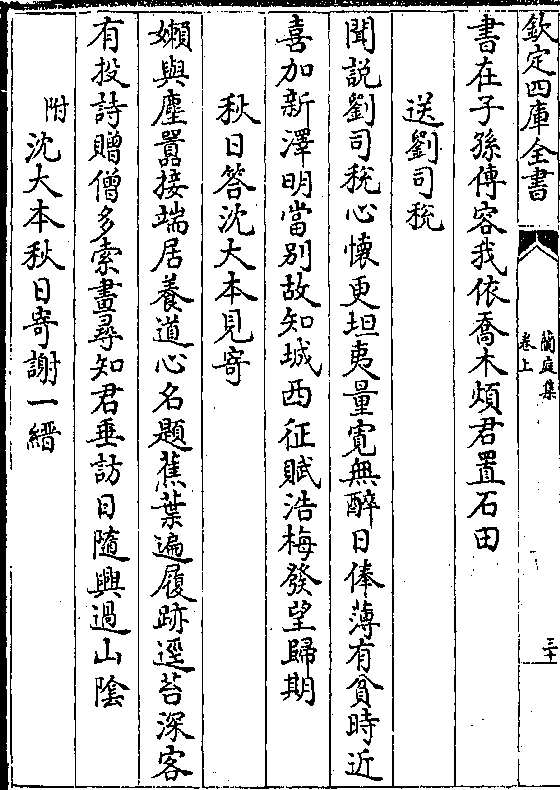 欽定四庫全書
蘭庭集
卷上
三十
書在子孫傳容我依喬木煩君置石田
送劉司稅
聞說劉司稅心懷更坦夷量寛無醉日俸薄有貧時近
喜加新澤明當别故知城西征賦浩梅發望歸期
秋日答沈大本見寄
嬾與塵囂接端居養道心名題蕉葉遍履跡逕苔深客
有投詩贈僧多索畫尋知君垂訪日隨興過山隂
附沈大本秋日寄謝一縉